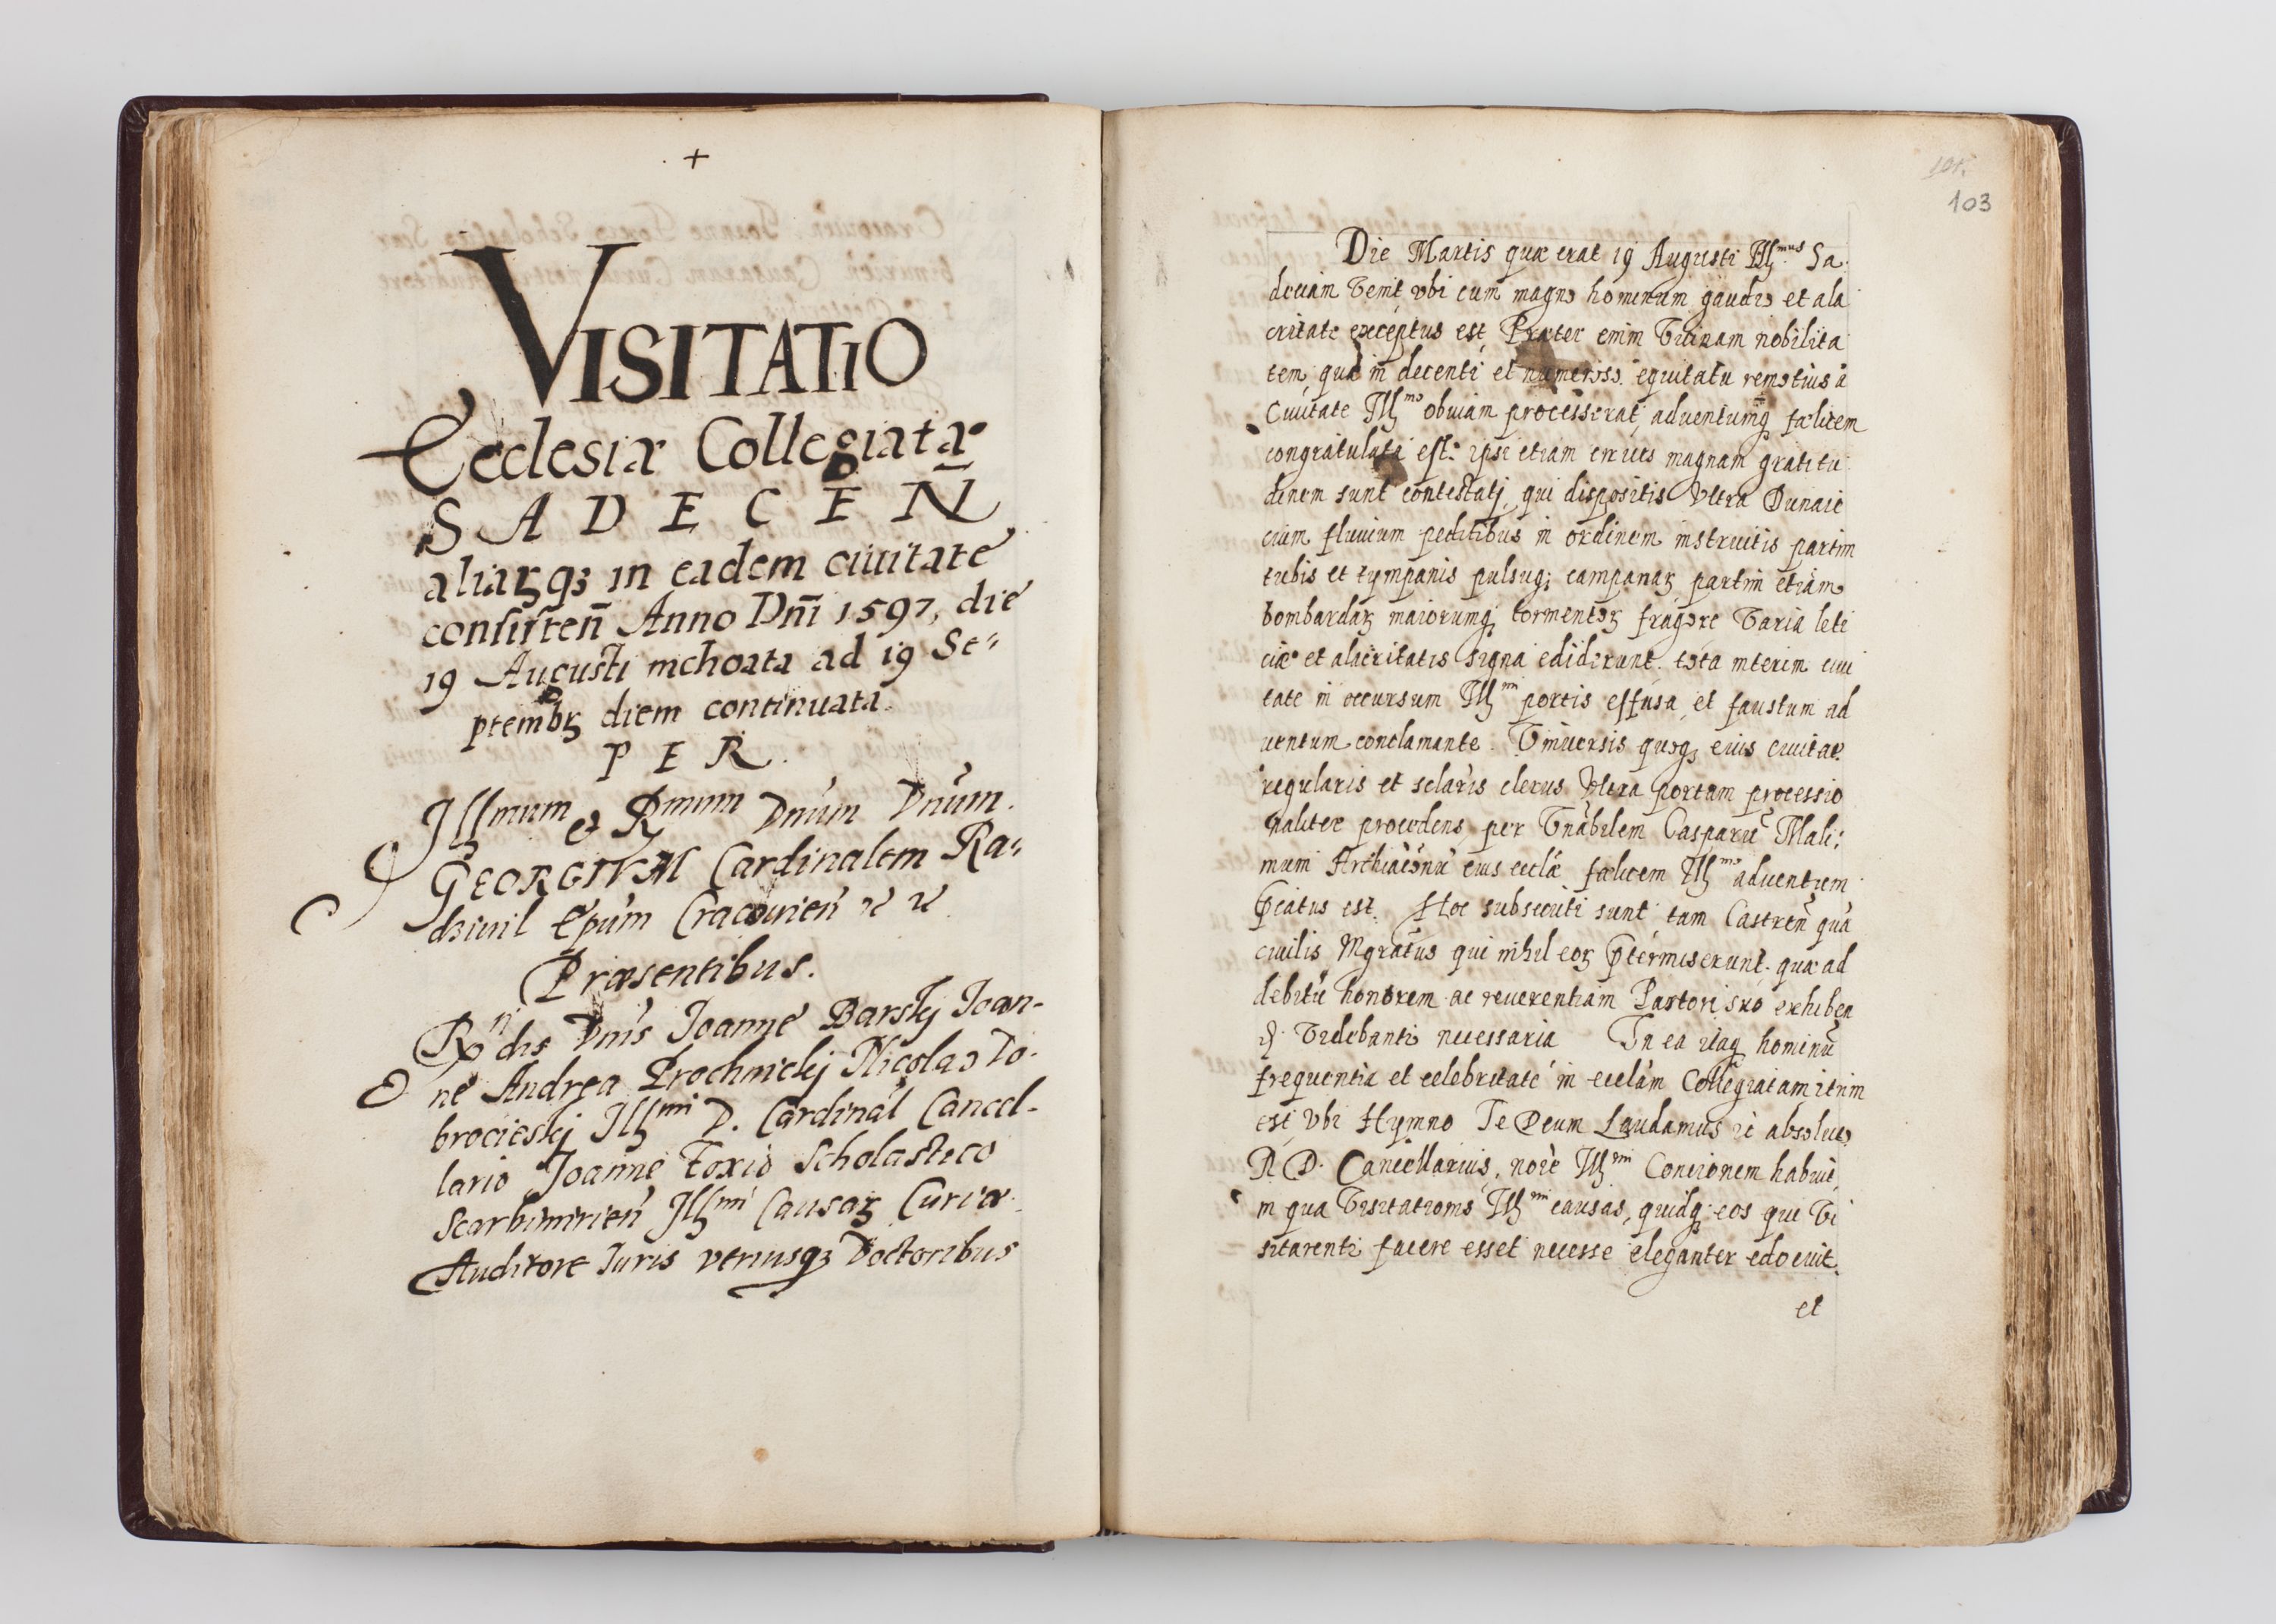 +
VISITATIO
Ecclesiæ Collegiatæ
SADECEN̄
aliarꝝ qꝫ in eadem ciuitate
consisten̄ Anno Dn̄i 1597, die
19 Augusti inchoata ad 19 Se⸗
ptembꝝ diem continuata.
PER.
Illmum et Rmum Dnum Dnum.
GEORGIVM Cardinalem Ra⸗
dziuil Epūm Cracouien̄
Præsentibus.
Rndis Dnis Joanne Barskj Joan-
ne Andrea Prochnickj Nicolao Do-
brocieskj Illmi D. Cardinal Cancel-
lario Joanne Foxio Scholastico
Scarbimirien̄ Illmi Causaꝝ Curiæ
Auditore Iuris vtriusqꝫ Doctoribus
101.
103
Die Martis quæ erat 19 Augusti Illmus Sa
deciam venit vbi cum magno hominum gaudio et ala
critate exceptus est, Præter enim vicinam nobilita
tem, quæ in decenti et numeroso equitatu remotius a
Ciuitate Illmo obuiam processerat aduentumq; fælicem
congratulata est: ipsi etiam ciues magnam gratitu
dinem sunt contestatj, qui dispositis vltra Dunaie
cium fluuium peditibus in ordinem instructis partim
tubis et tympanis pulsuq; campanaꝝ partim etiam
bombardaꝝ maiorumq; tormentoꝝ fragore varia leti
ciæ et alacritatis signa ediderunt. tota interim ciui
tate in occursum Illmi portis effusa, et faustum ad
uentum conclamante. Vniuersis quoq; eius ciuitat
regularis et sclaris clerus vltra portam processio
naliter procedens, per Vnabilem Casparū Mali:
mum Archiaconū eius ecclæ fælicem Illmo aduentum
pcatus est. Hoc subsecuti sunt tam Castren̄ quā
ciuilis Mgratus qui nihil eoꝝ ptermiserunt. quæ ad
debitū honorem ac reuerentiam Pastori suo exhiben
d. videbantr necessaria In ea itaq; hominū
frequentia et celebritate in ecclam Collegiatam itum
est vbi Hymno Te Deum Laudamus absoluto
R. D. Cancellarius, noie Illmi Concionem habuit,
in qua visitationis Illmi causas, quidq; eos qui vi
sitarentr facere esset necesse eleganter edocuit.
et